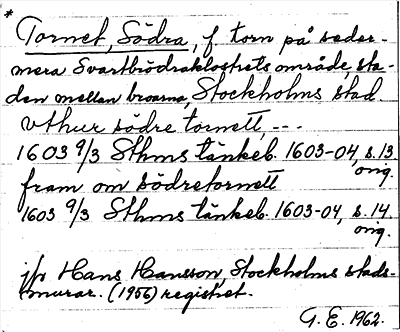 *
Tornet, Södra, f. torn på seder-
mera Svartbrödraklostrets område, sta-
den mellan broarna, Stockholms stad
vthur södre tornett, ---
1603 9/3 Sthms tänkeb. 1603-04, s. 13
orig.
fram om södretornett
1603 9/3 Sthms tänkeb. 1603-04, s. 14
orig.
jfr Hans Hansson, Stockholms stads-
murar. (1956) registret.
G. E. 1962.